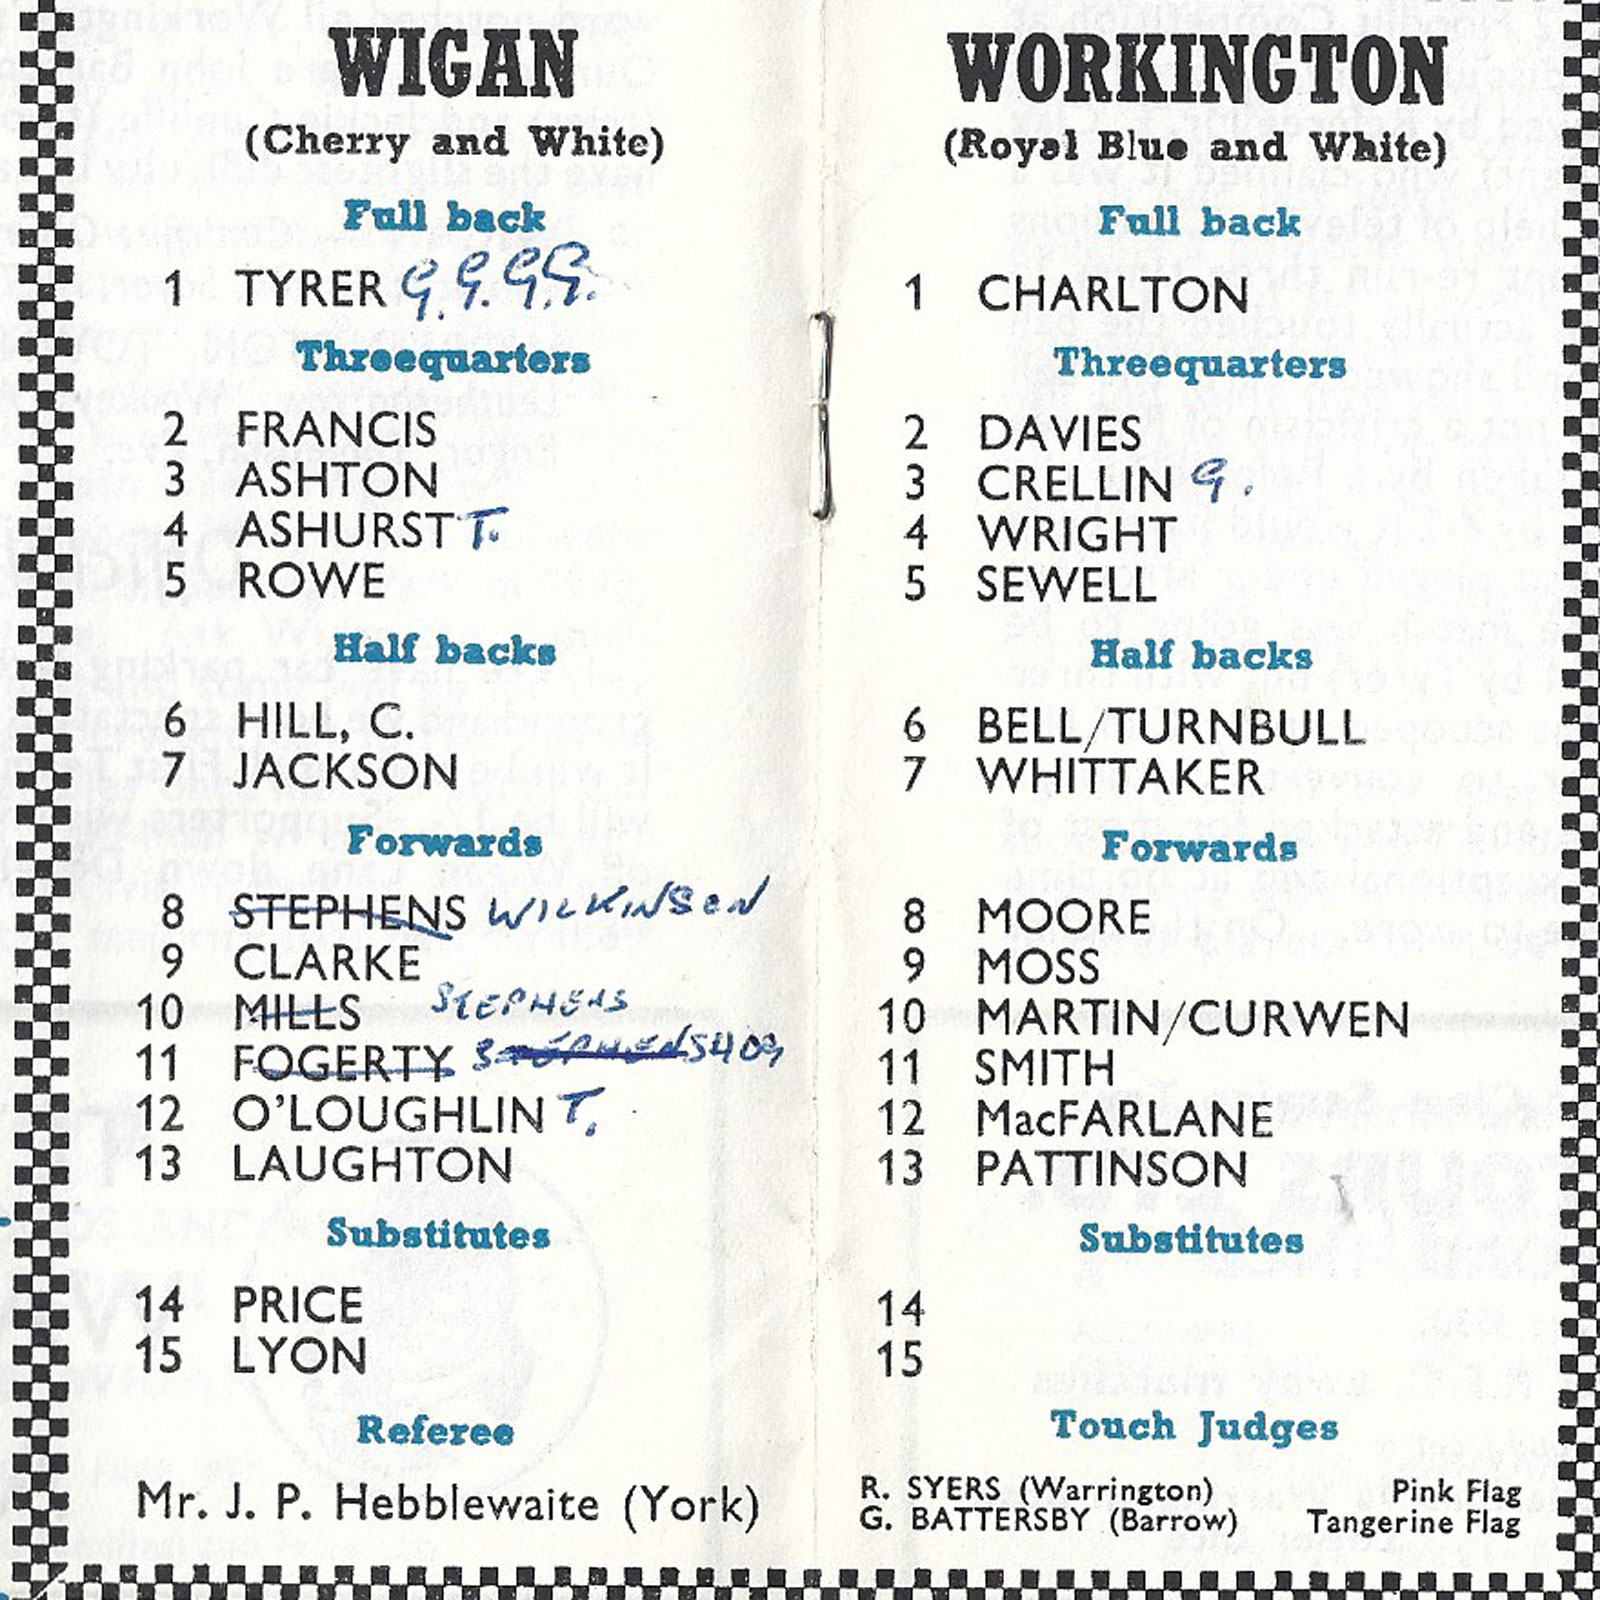 WIGAN
(Cherry and White)
Full back
1 TYRER G. G. G. G.
Threequarters
2 FRANCIS
3 ASHTON
4 ASHURST T.
5 ROWE
Half backs
6 HILL, C.
7 JACKSON
Forwards
8 STEPHENS WILKINSON
9 CLARKE
10 MILLS STEPHENS
11 FOGERTY STEPHENS
12 O'LOUGHLIN T.
13 LAUGHTON
Substitutes
14 PRICE
15 LYON
Referee
Mr. J. P. Hebblewaite (York)
WORKINGTON
(Royal Blue and White)
Full back
1 CHARLTON
Threequarters
2 DAVIES
3 CRELLIN G.
4 WRIGHT
5 SEWELL
Half backs
6 BELL/TURNBULL
7 WHITTAKER
Forwards
8 MOORE
9 MOSS
10 MARTIN/CURWEN
11 SMITH
12 MacFARLANE
13 PATTINSON
Substitutes
14
15
Touch Judges
R. SYERS (Warrington) Pink Flag
G. BATTERSBY (Barrow) Tangerine Flag